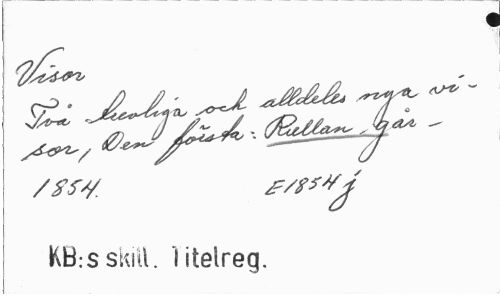 Visor
Två trevliga och alldeles nya vi-
sor, Den första: Rullan går -
1854. E1854 j
KB:s skill. Titelreg.